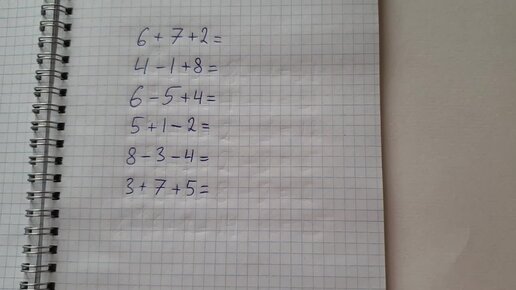 6 + 7 + 2 =
4 - 1 + 8 =
6 - 5 + 4 =
5 + 1 - 2 =
8 - 3 - 4 =
3 + 7 + 5 =